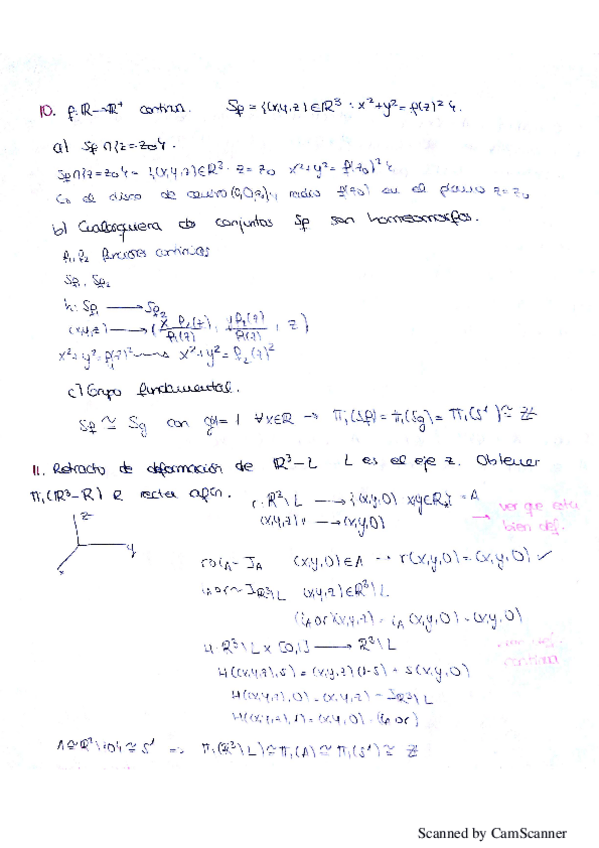 10. f: R → R⁺ continua. Sf = {(x,y,z) ∈ R³ : x²+y² = f(z)²}.
a) Sf ∩ {z=z₀}.
Sf ∩ {z=z₀} = {(x,y,z) ∈ R³ : z=z₀ x²+y² = f(z₀)²}
de disco de centro (0,0,z₀) y radio f(z₀) en el plano z=z₀
b) Cualesquiera de conjuntos Sf son homeomorfos.
f₁, f₂ funciones continuas
Sf₁, Sf₂
h: Sf₁ → Sf₂
(x,y,z) → (x f₂(z)/f₁(z), y f₂(z)/f₁(z), z)
x²+y²=f₁(z)² → x²+y² = f₂(z)²
c) Grupo fundamental.
Sf ≅ Sg con g = 1 ∀x∈R → π₁(Sf) = π₁(Sg) = π₁(S¹) ≅ Z
11. Retracto de deformación de R³−L L es el eje z. Obtener
π₁(R³−R) R recta afín.
r: R³\L → {(x,y,0) x,y∈R} = A
→ ver que esta
(x,y,z) → (x,y,0)
bien def.
z
y
x
r∘i_A ~ J_A (x,y,0) ∈ A → r(x,y,0) = (x,y,0) ✓
i_A∘r ~ J_R³\L (x,y,z) ∈ R³\L
(i_A∘r)(x,y,z) = i_A(x,y,0) = (x,y,0)
H: R³\L × [0,1] → R³\L
H((x,y,z),s) = (x,y,z)(1-s) + s(x,y,0)
H((x,y,z),0) = (x,y,z) = J_R³\L
H((x,y,z),1) = (x,y,0) = (i_A∘r)
A ≅ R²\{0} ≅ S¹ ⇒ π₁(R³\L) ≅ π₁(A) ≅ π₁(S¹) ≅ Z
Scanned by CamScanner